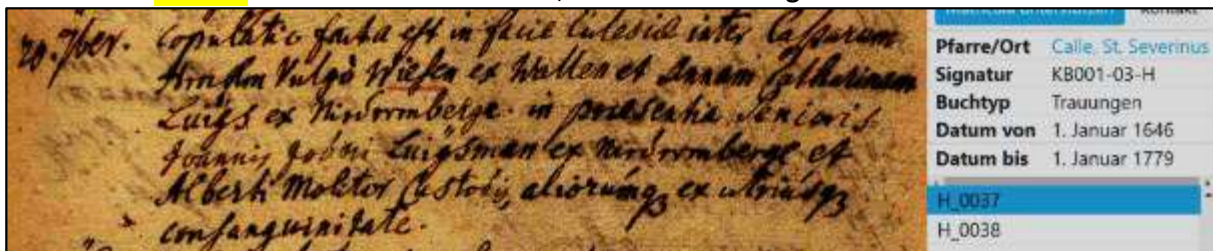 20. 7ber. Copulatio facta est in facie Eclesiæ inter Casparum
Vulgò Wiesen ex Wallen et Annam Catharinam
Luigs ex in præsentia Senioris
Joannis Luigsman ex et
Alberti Molitor Custodis, aliorúmqȝ ex utriusqȝ
consanguinitate.
Kontakt
Pfarre/Ort Calle, St. Severinus
Signatur KB001-03-H
Buchtyp Trauungen
Datum von 1. Januar 1646
Datum bis 1. Januar 1779
H_0037
H_0038